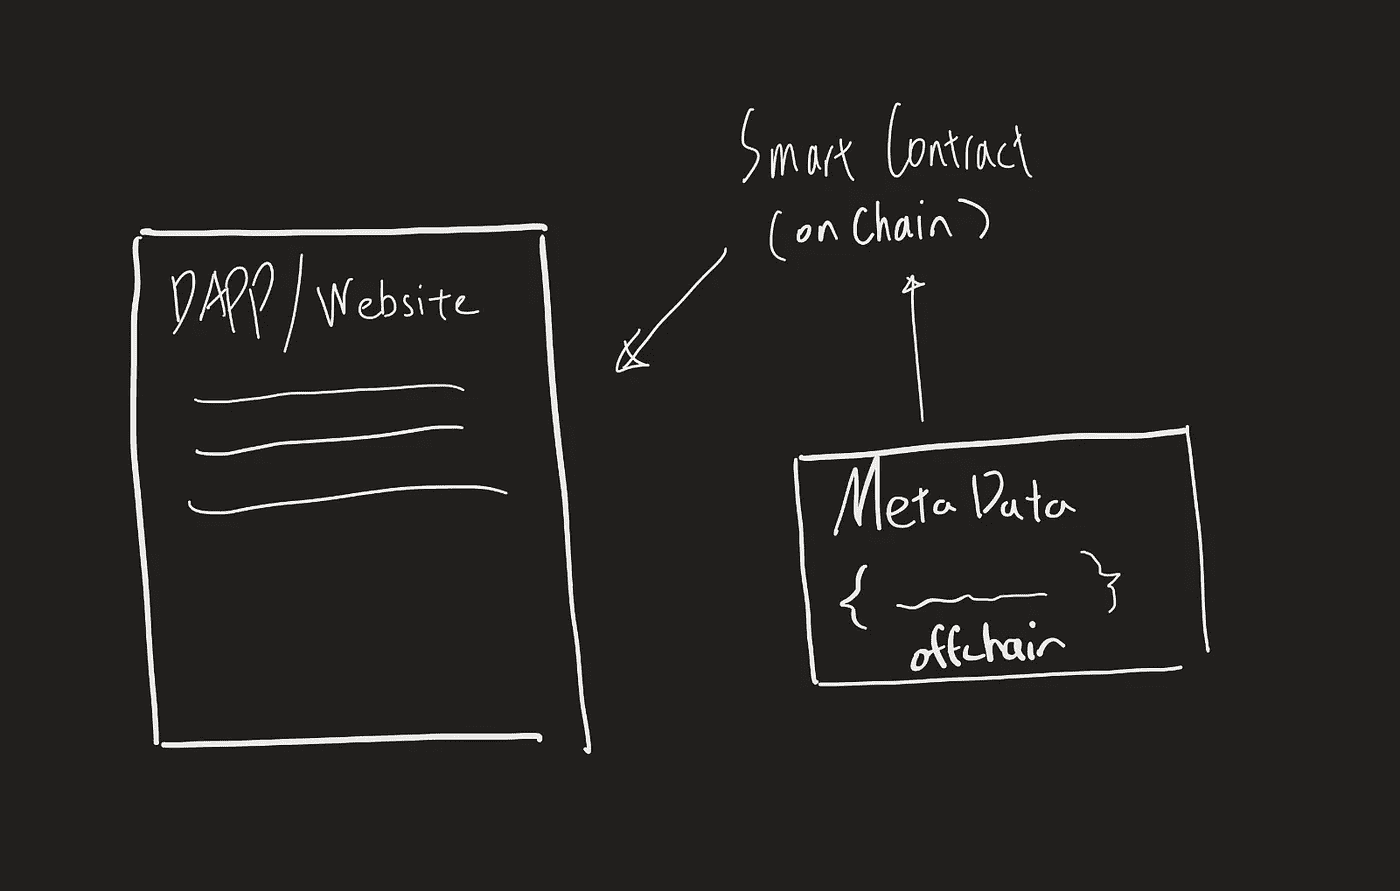 Smart Contract
(on Chain)
DAPP/Website
Meta Data
{ }
offchain